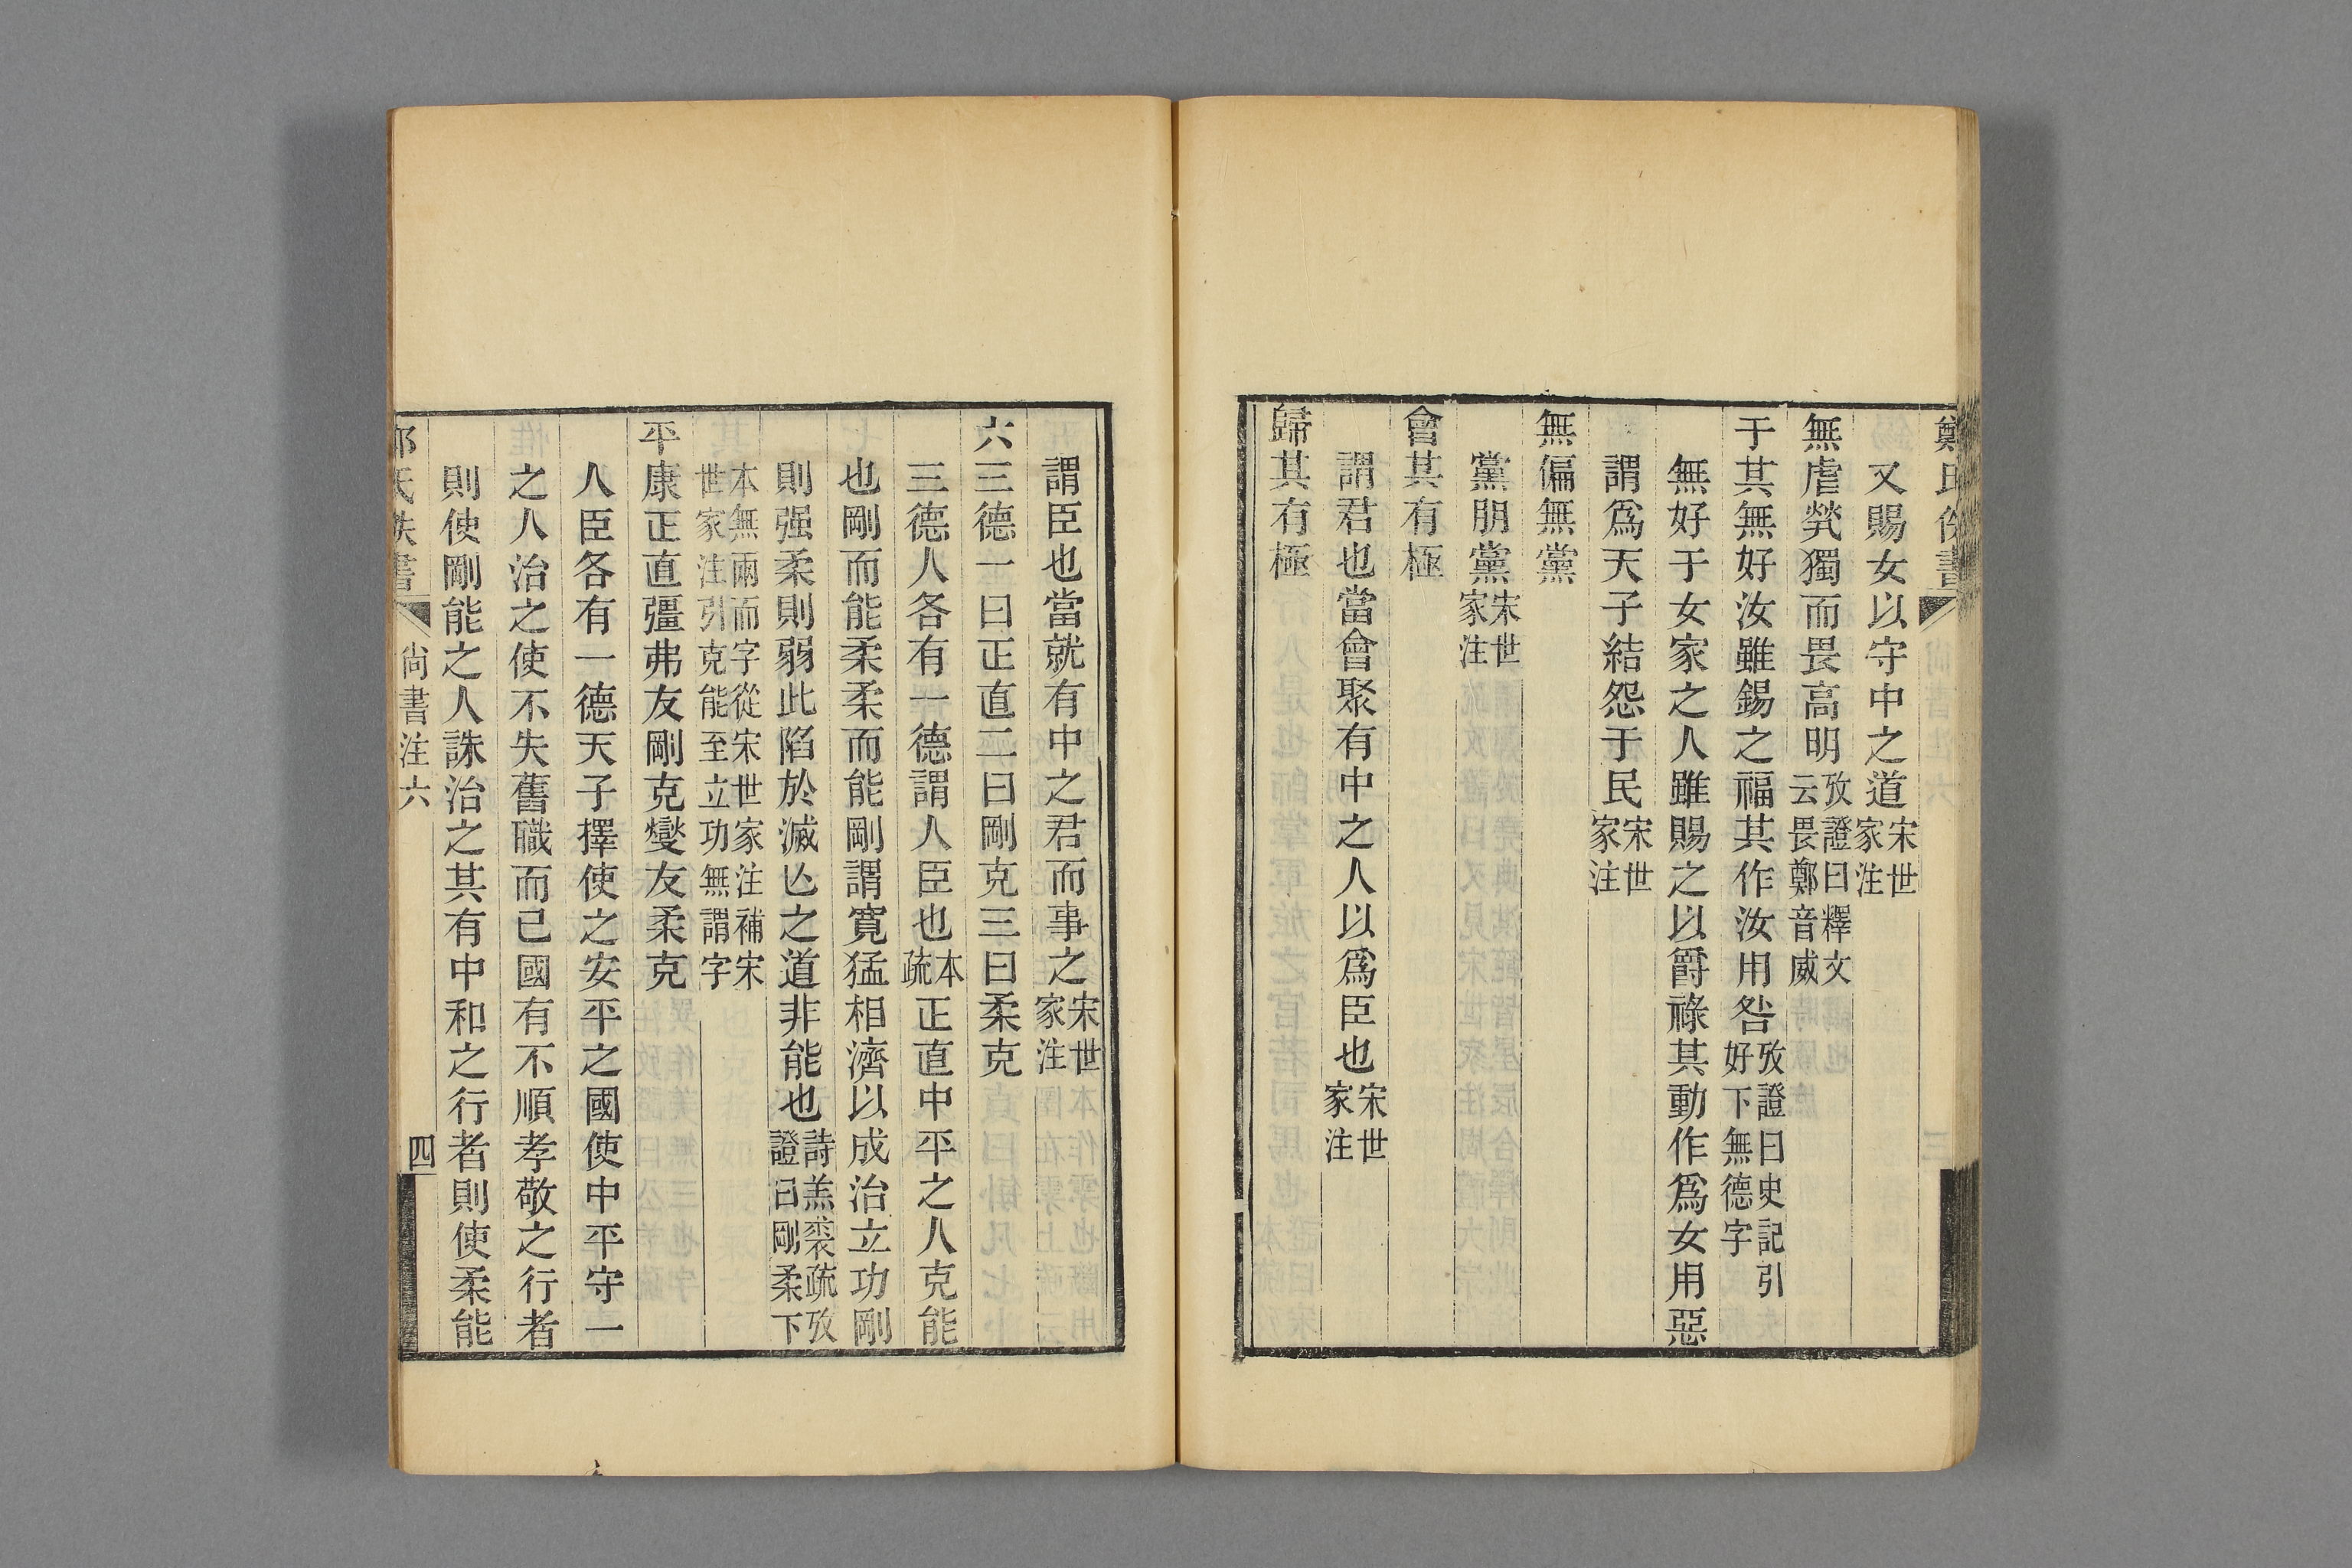 鄭氏佚書
又賜女以守中之道宋世家注
無虐煢獨而畏高明攷證曰釋文云畏鄭音威
于其無好汝雖錫之福其作汝用咎攷證曰史記引好下無德字
無好于女家之人雖賜之以爵祿其動作爲女用惡
謂爲天子結怨于民宋世家注
無偏無黨
黨朋黨宋世家注
會其有極
謂君也當會聚有中之人以爲臣也宋世家注
歸其有極
謂臣也當就有中之君而事之宋世家注
六三德一曰正直二曰剛克三曰柔克
三德人各有一德謂人臣也本疏正直中平之人克能
也剛而能柔柔而能剛謂寬猛相濟以成治立功剛
則强柔則弱此陷於滅亾之道非能也詩羔裘疏攷證曰剛柔下
本無兩而字從宋世家注補宋世家注引克能至立功無謂字
平康正直彊弗友剛克燮友柔克
人臣各有一德天子擇使之安平之國使中平守一
之人治之使不失舊職而已國有不順孝敬之行者
則使剛能之人誅治之其有中和之行者則使柔能
氏佚書 尙書注六 四